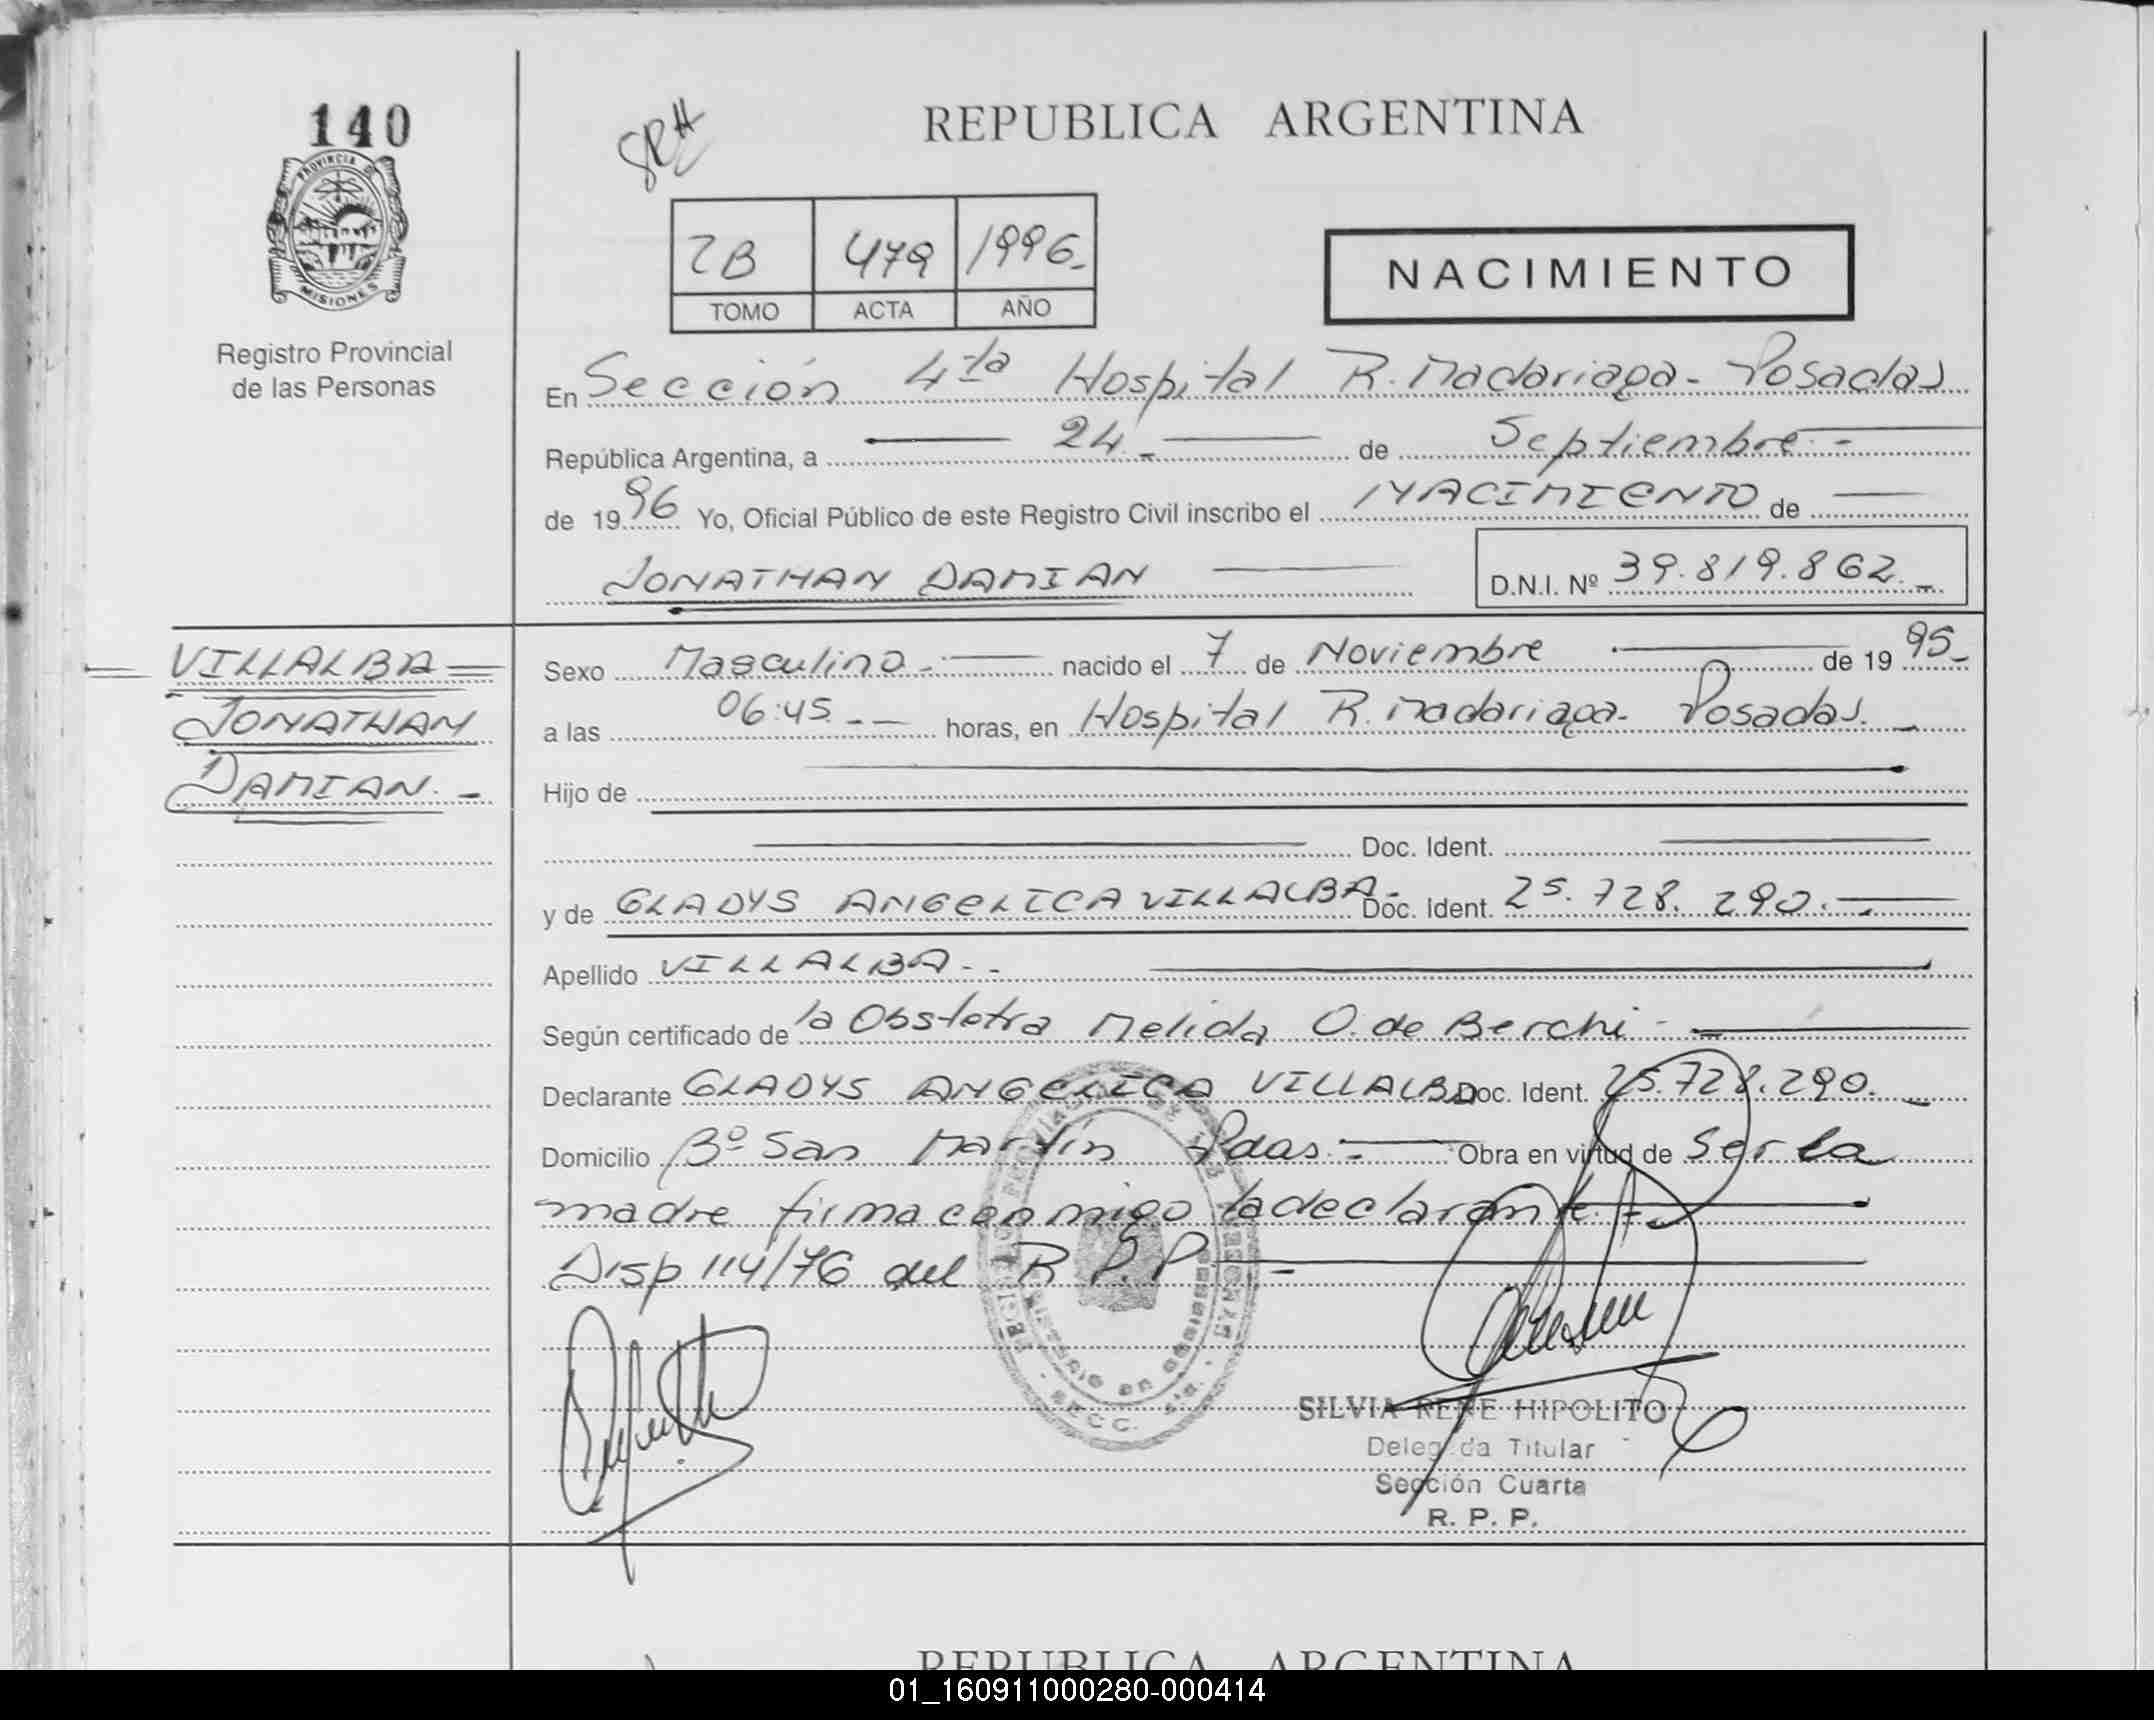 140
PROVINCIA DE
MISIONES
Registro Provincial
de las Personas
SRH
REPUBLICA ARGENTINA
2B 479 1996.-
TOMO ACTA AÑO
NACIMIENTO
En Sección 4ta Hospital R. Madariaga - Posadas
República Argentina, a 24.- de Septiembre.-
de 1996 Yo, Oficial Público de este Registro Civil inscribo el NACIMIENTO de
JONATHAN DAMIAN D.N.I. Nº 39.819.862.-
VILLALBA
JONATHAN
DAMIAN.-
Sexo Masculino.- nacido el 7 de Noviembre de 1995-
a las 06:45.-- horas, en Hospital R. Madariaga- Posadas.-
Hijo de
Doc. Ident.
y de GLADYS ANGELICA VILLALBA- Doc. Ident. 25.728.290.-
Apellido VILLALBA.-
Según certificado de la Obstetra Nelida O. de Berchi -
Declarante GLADYS ANGELICA VILLALBA Doc. Ident. 25.728.290.-
Domicilio Bº San Martín Pdas.- Obra en virtud de Ser la
madre firma conmigo la declarante.-
Disp 114/76 del R.P.P.-
SILVIA RENE HIPOLITO
Delegada Titular
Sección Cuarta
R. P. P.
REPUBLICA ARGENTINA
01_160911000280-000414